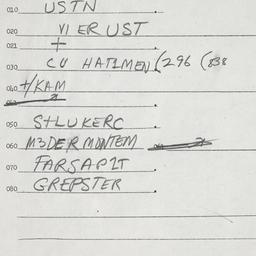 010 USTN
020 VIERUST
021 +
030 CU HATIMEN (296 (838
040 +/KAM
050 S+LUKERC
060 M3DERMONTEM
070 FARSAPIT
080 GREPSTER